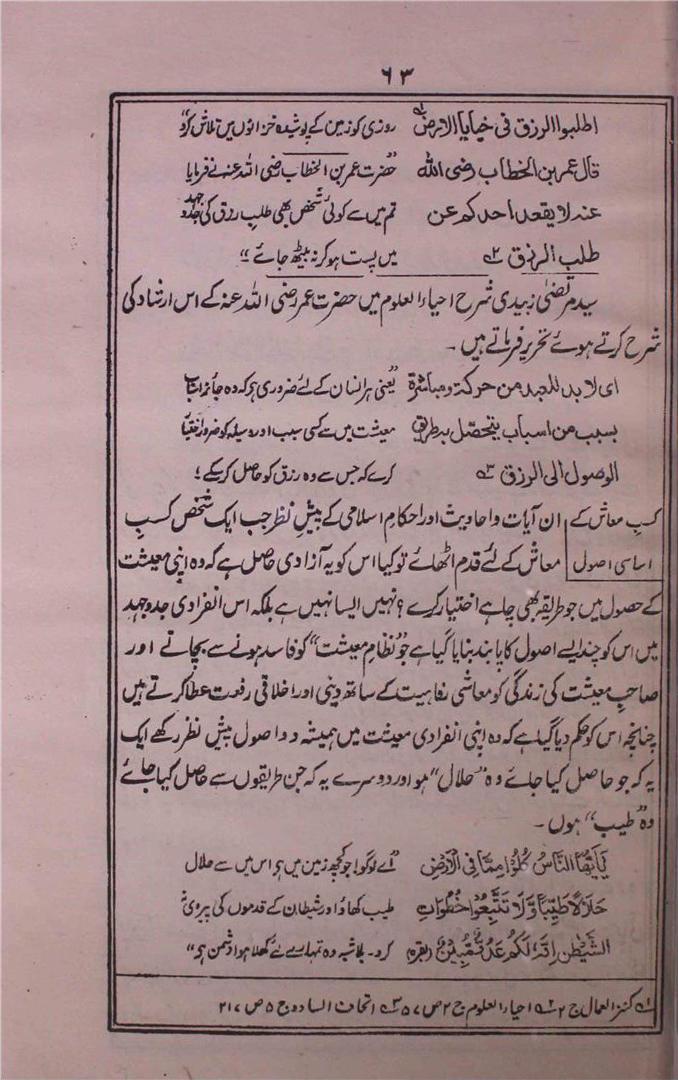 ٦٣
اطلبوا الرزق فی خبایا الارض ؎۱ روزی کو زمین کے پوشیدہ خزانوں میں تلاش کرو
قال عمر بن الخطاب رضی الله "حضرت عمر بن الخطاب رضی اللہ عنہ نے فرمایا
عنہ لا یقعد احدکم عن تم میں سے کوئی شخص بھی طلبِ رزق کی جدوجہد
طلب الرزق ؎۲ میں پست ہو کر نہ بیٹھ جائے"
سید مرتضیٰ زبیدی شرح احیاء العلوم میں حضرت عمر رضی اللہ عنہ کے اس ارشاد کی
شرح کرتے ہوئے تحریر فرماتے ہیں۔
ای لا بد للعبد من حرکة ومباشرة "یعنی ہر انسان کے لئے ضروری ہے کہ وہ جائز اسباب
بسبب من اسباب یتحصّل بہ طریق معیشت میں سے کسی سبب اور وسیلہ کو ضرور اختیار
الوصول الی الرزق ؎۳ کرے کہ جس سے وہ رزق کو حاصل کر سکے؛
کسبِ معاش کے ان آیات و احادیث اور احکامِ اسلامی کے پیشِ نظر جب ایک شخص کسبِ
اساسی اصول معاش کے لئے قدم اٹھائے تو کیا اس کو یہ آزادی حاصل ہے کہ وہ اپنی معیشت
کے حصول میں جو طریقہ بھی چاہے اختیار کرے؟ نہیں ایسا نہیں ہے بلکہ اس انفرادی جدوجہد
میں اس کو چند ایسے اصول کا پابند بنایا گیا ہے جو "نظامِ معیشت" کو فاسد ہونے سے بچاتے اور
صاحبِ معیشت کی زندگی کو معاشی رفاہیت کے ساتھ دینی اور اخلاقی رفعت عطا کرتے ہیں
چنانچہ اس کو حکم دیا گیا ہے کہ وہ اپنی انفرادی معیشت میں ہمیشہ دو اصول پیشِ نظر رکھے ایک
یہ کہ جو حاصل کیا جائے وہ "حلال" ہو اور دوسرے یہ کہ جن طریقوں سے حاصل کیا جائے
وہ "طیب" ہوں۔
یٰۤاَیُّهَا النَّاسُ كُلُوْا مِمَّا فِی الْاَرْضِ "اے لوگو! جو کچھ زمین میں ہے اس میں سے حلال
حَلٰلًا طَیِّبًا وَّلَا تَتَّبِعُوْا خُطُوٰتِ طیب کھاؤ اور شیطان کے قدموں کی پیروی نہ
الشَّیْطٰنِ اِنَّهٗ لَكُمْ عَدُوٌّ مُّبِیْنٌ (بقرہ) کرو۔ بلاشبہ وہ تمہارے لئے کھلا ہوا دشمن ہے"
؎۱ کنز العمال ج ۲ ؎۲ احیاء العلوم ج ۲ ص ۵۷ ؎۳ اتحاف السادہ ج ۵ ص ۲۱۷